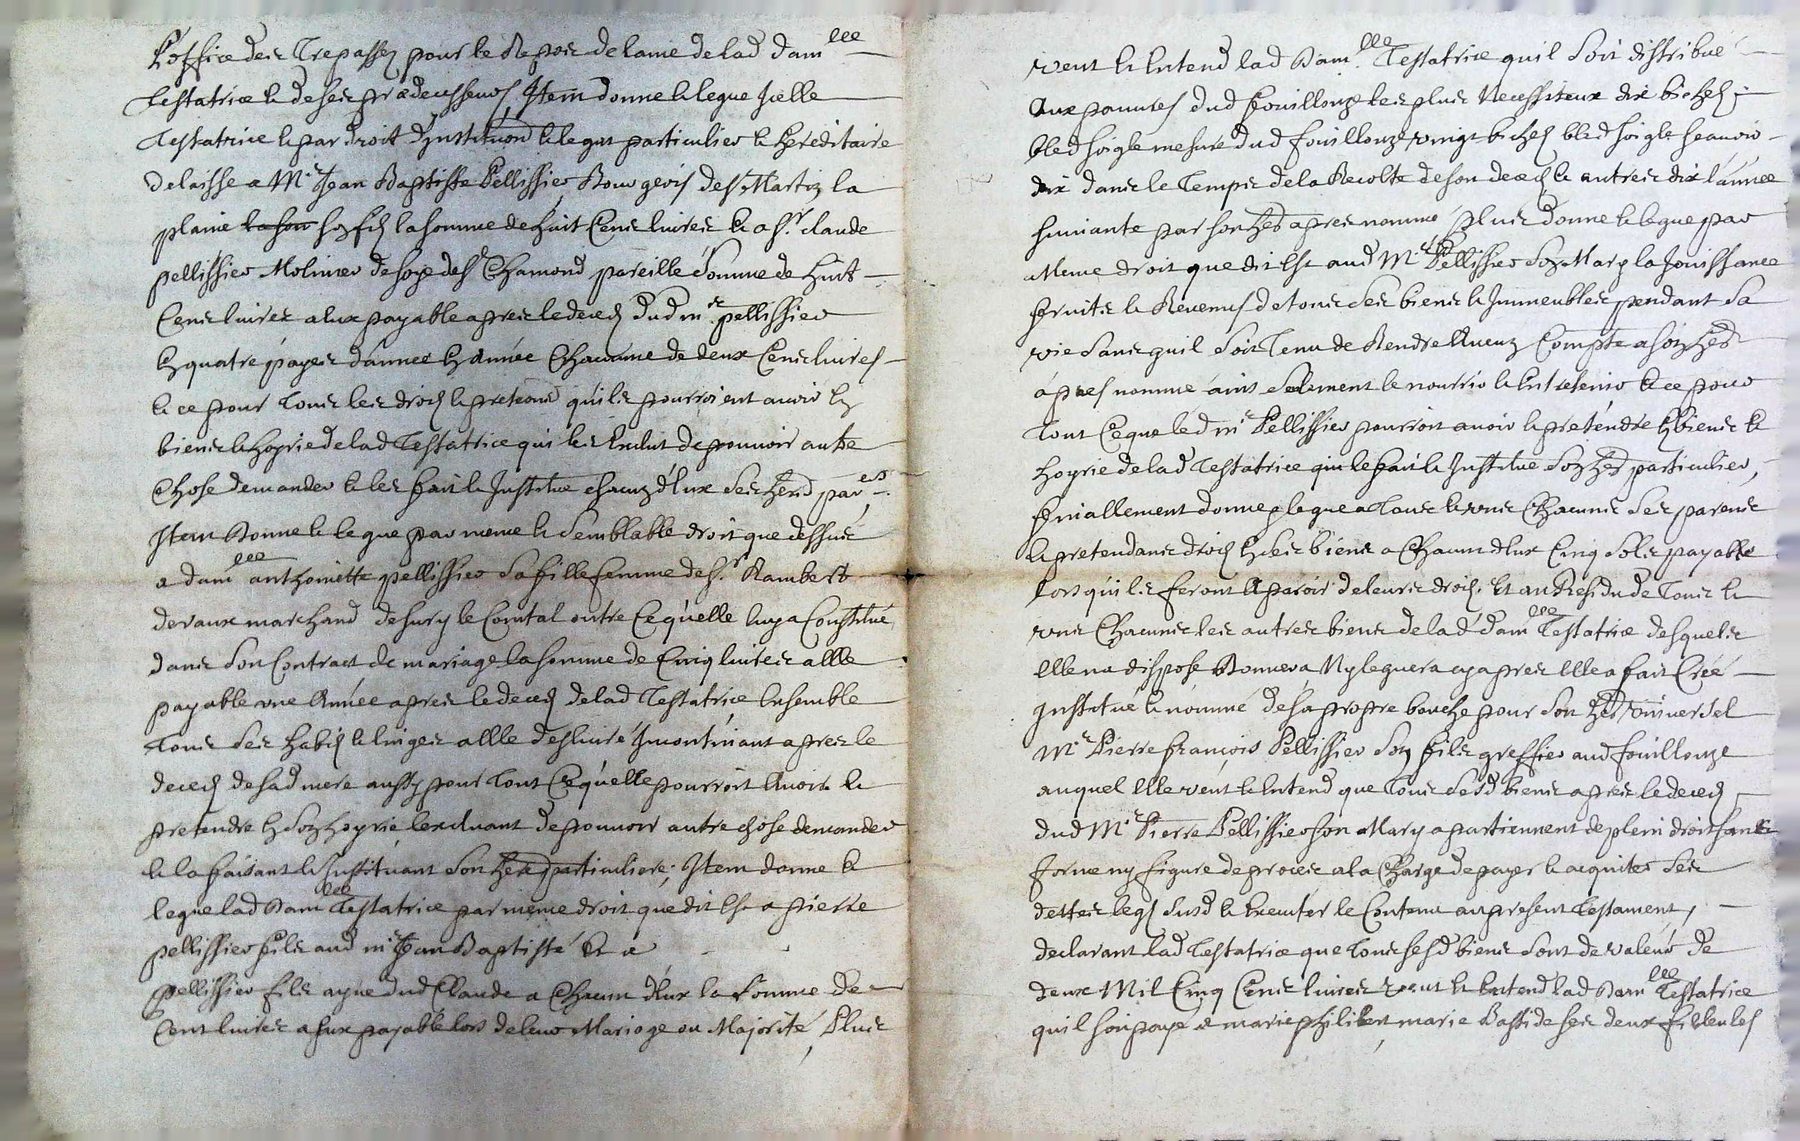 L'office des Trepassez pour le Repos de lame de lad dam<sup>lle</sup>
testatrice & de ses prædecesseurs, Item donne & legue Icelle
Testatrice & par droit d'Institution & legat particulier & hereditaire
delaisse a M<sup>r</sup> Jean Baptiste Pellissier Bourgeois de S<sup>t</sup> Martin la
plaine son fils la somme de huit Cens livres & a S<sup>r</sup>. claude
pellissier Molinier de soye de S<sup>t</sup> Chamond pareille somme de huit
Cens livres a eux payable apres le deces dud m<sup>re</sup> pellissier
en quatre payes d'année en Année Chacune de deux Cens livres
& ce pour tous les droits & pretentions qu'ils pourroient avoir en
biens & hoyrie de lad Testatrice qui les Exclut de pouvoir autre
Chose demander & les fait & Institue chacun d'Eux ses herd par<sup>ers</sup>.
Item Donne & legue par meme & semblable droit que dessus
a dam<sup>lle</sup> anthoinette pellissier sa fille femme de S<sup>r</sup> Rambert
devaux marchand de sury le Comtal outre Ce qu'elle luy a Constitué
dans son Contract de mariage la somme de Cinq livres a Elle
payable une Année apres le deces de lad Testatrice Ensemble
tous ses habits & linges a Elle deslivré Incontinant apres le
deces de sad mere aussy pour tout Ce qu'elle pourroit Avoir &
pretendre en son hoyrie, l'excluant de pouvoir autre chose demander
& la faisant & Instituant son herd particuliere; Item donne &
legue lad Dam<sup>lle</sup> Testatrice par meme droit que dit Est a pierre
pellissier fils aud m<sup>r</sup> Jean Baptisté Et a
pellissier fils ayne dud Claude a Chacun d'Eux la somme de
Cent livres a Eux payable lors de leur Mariage ou Majorité, Plus
veut & Entend lad Dam<sup>lle</sup> Testatrice qu'il soit distribué
Aux pauvres dud fouillouze les plus Necessiteux dix bichets
bled soigle mesure dud fouillouze vingt bichets bled soigle scavoir
dix dans le Temps de la Recolte de son deces & autres dix l'année
suivante par son herd apres nommé, plus donne & legue par
Meme droit que dit Est aud M<sup>re</sup> Pellissier son Mary la Jouissance
fruits & Revenus de tous ses biens & Immeubles pendant sa
vie sans qu'il soit Tenu de Rendre Aucun Compte a son herd
apres nommé ains seulement le nourrir & Entretenir & ce pour
tout Ce que led m<sup>re</sup> Pellissier pourroit avoir & pretendre en biens &
hoyrie de lad Testatrice qui le fait & Institue son herd particulier,
finallement donne & legue a Tous & uns Chacuns ses parens
& pretendans droits en ses biens a Chacun d'Eux Cinq sols payable
lors qu'ils feront Aparoir de leurs droits. Et au Residu de Tous &
uns Chacuns les autres biens de lad dam<sup>lle</sup> Testatrice desquels
Elle n'a dispose Donnera Ny leguera cy apres Elle a fait Créé
Institué & nommé de sa propre bouche pour son herd Universel
M<sup>re</sup> Pierre françois Pellissier son fils greffier aud fouillouze
auquel Elle veut & Entend que Tous sesd biens apres le deces
dud M<sup>re</sup> Pierre Pellissier son Mary apartiennent de plein droit sans
forme ny figure de proces a la Charge de payer & acquiter ses
dettes legs susd & Executer le Contenu au present Testament,
declarant lad Testatrice que Tous sesd biens sont de valeur de
deux Mil Cinq Cens livres veut & Entend lad Dam<sup>lle</sup> Testatrice
qu'il soit payé a marie philibert marie Bastide ses deux filleules